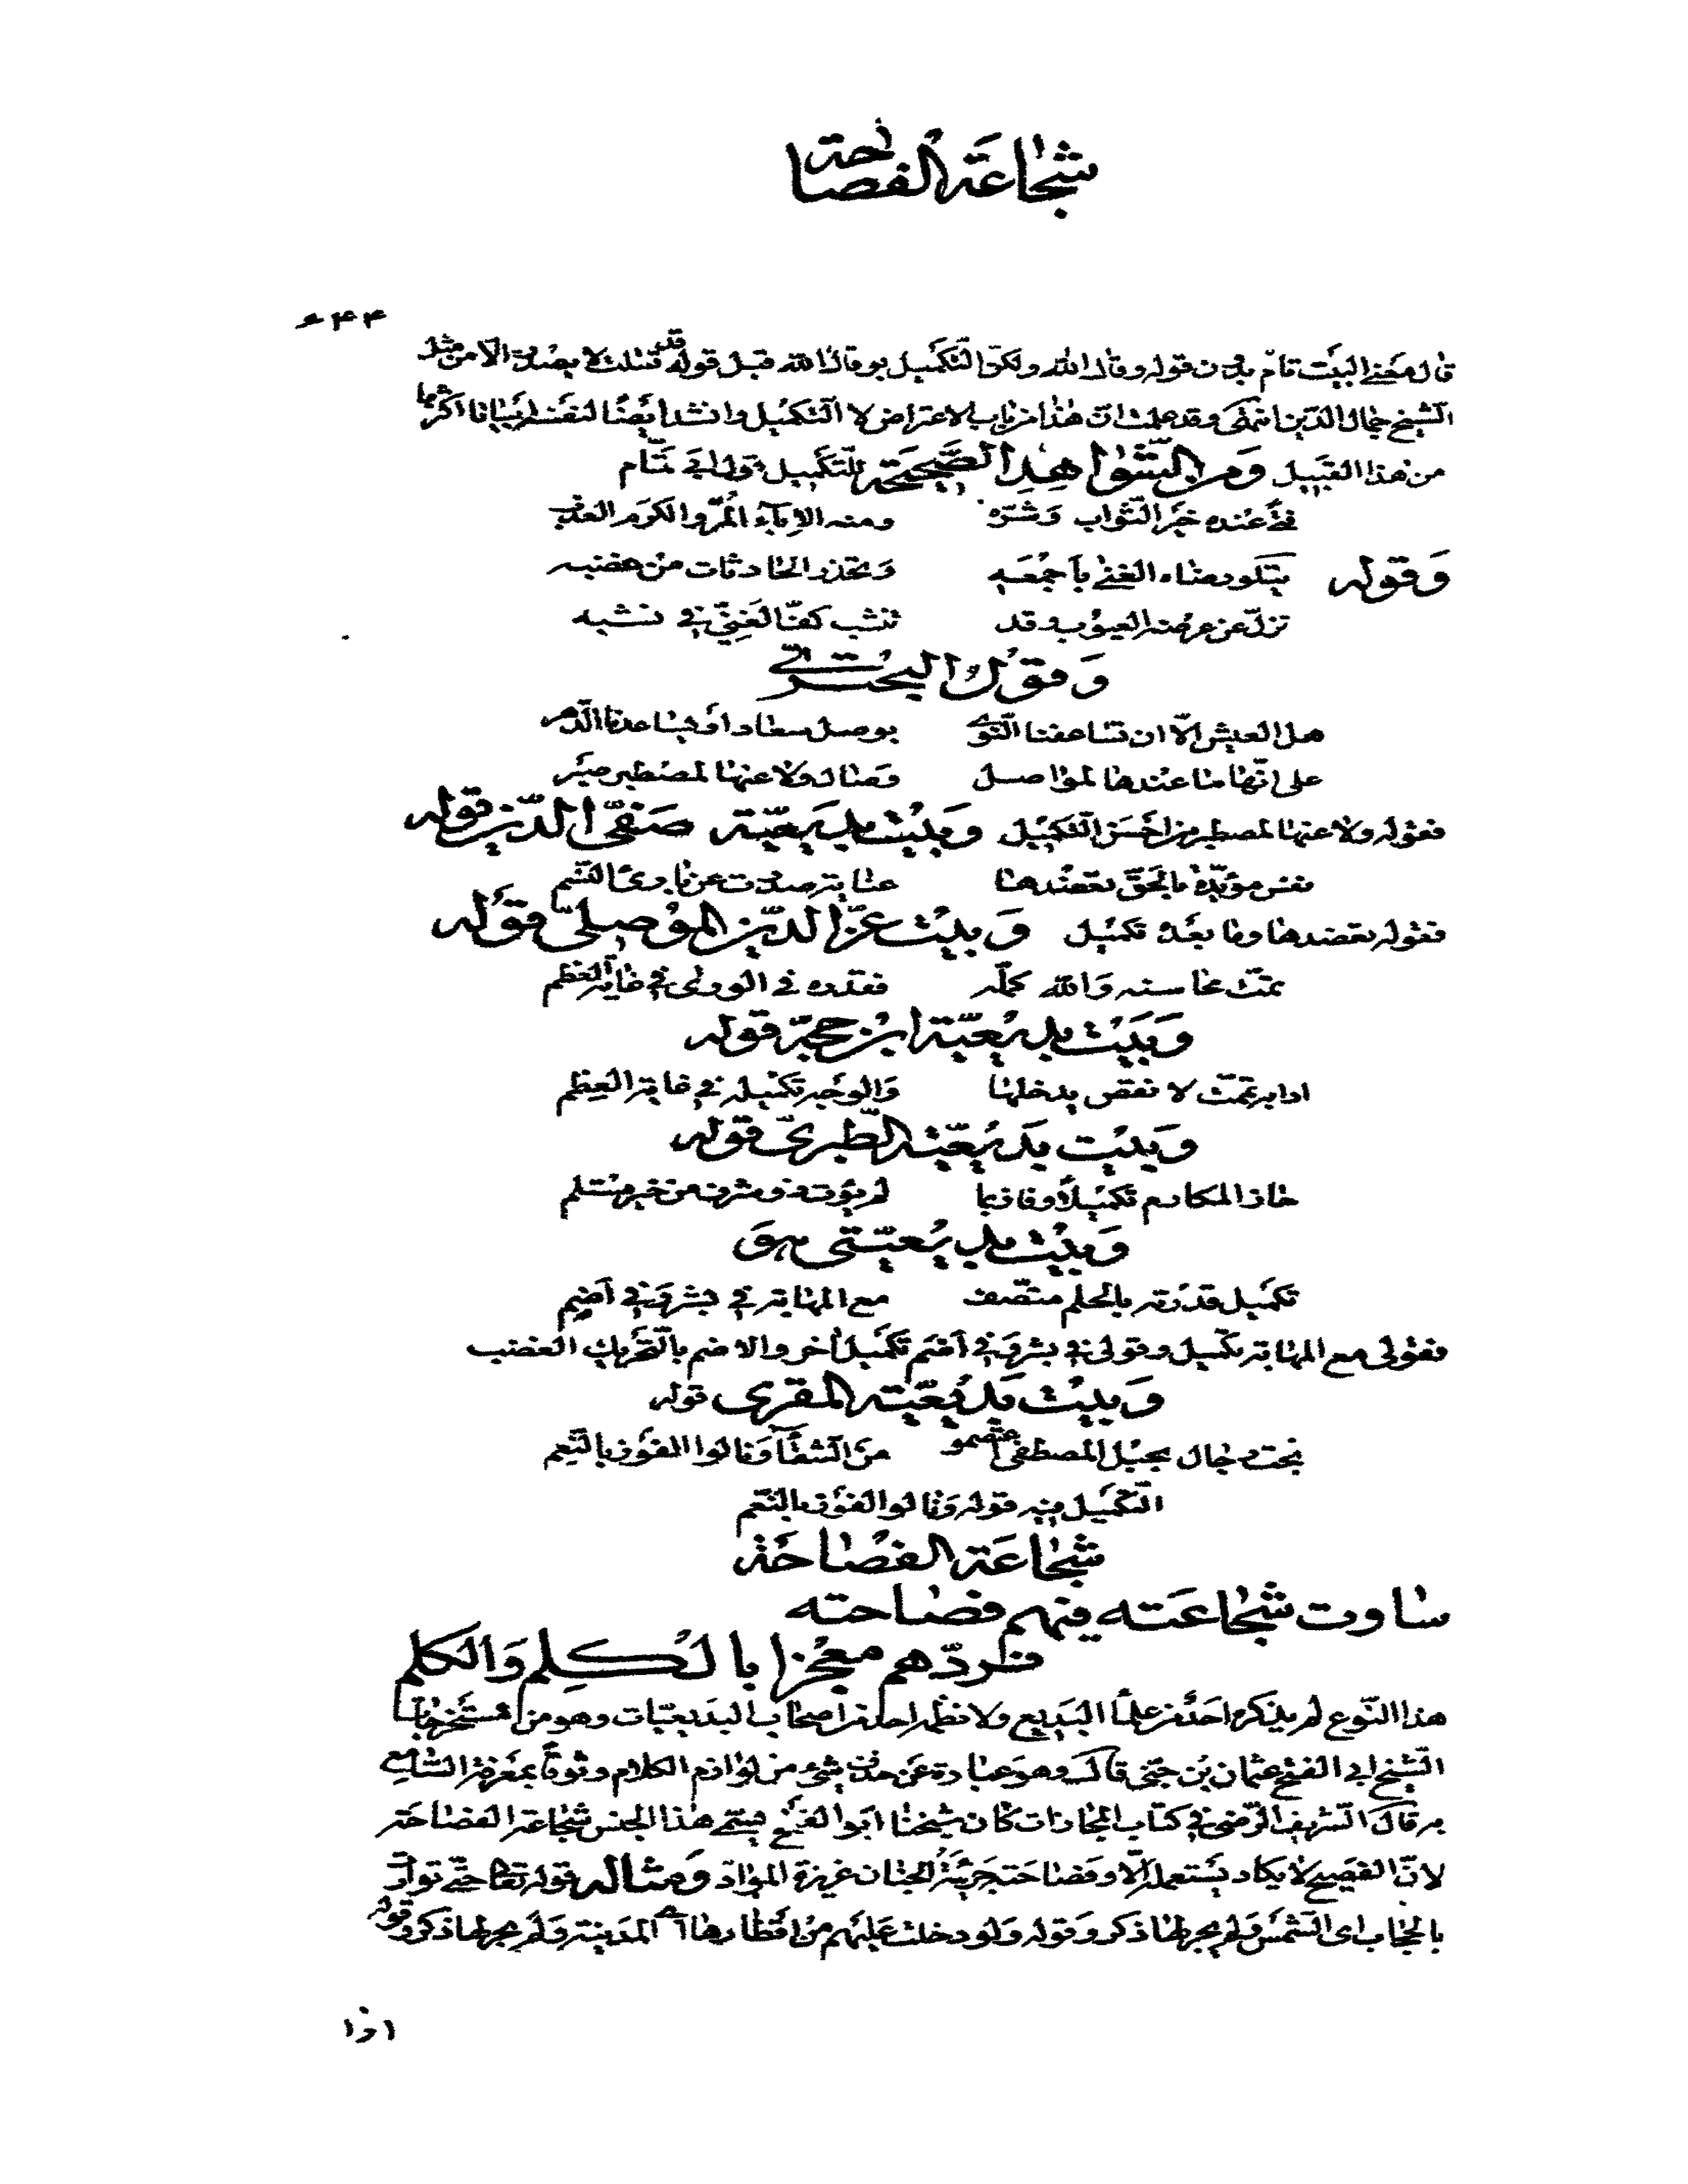 شجاعة الفصاحة
٤٤٠
قال معنى البيت تامّ بدون قوله وقاك الله ولكنّ التّكميل بوقاك الله قبل قوله قلت قتلك لا يصدر الّا من مثل
الشّيخ جمال الدّين انتهى وقد علمت انّ هذا من باب الاعتراض لا التّكميل وانشد ايضًا لنفسه ابياتا اكثرها
من هذا القبيل ومن الشّواهد الصّحيحة للتّكميل قول ابى تمّام
فتى عنده خير الثّواب وشرّه ومنه الاباء المُرّ والكرم العذب
وقوله يتلو رضاه الغنى باجمعه وتحذر الحادثات من غضبه
تزلّ عن عرضه العيوب وقد تنشب كفّ الغنىّ فى نشبه
وقول البحترى
هل العيش الّا ان تساعفنا النّوى بوصل سعاد او يساعدنا الدّهر
على انّها ما عندها لمواصل وصال ولا عنها لمصطبر صبر
فقوله ولا عنها لمصطبر من احسن التّكميل وبيت بديعيّة صفىّ الدّين قوله
نفس مؤيّدة بالحقّ تعضدها عناية صدرت عن بارئ النّسم
فقوله تعضدها وما بعده تكميل وبيت عزّ الدّين الموصلىّ قوله
تمّت محاسنه والله كمّله فقدره فى الورى فى غاية العظم
وبيت بديعيّة ابن حجّة قوله
ادابه تمّت لا نقص يدخلها والوجه تكميله فى غاية العظم
وبيت بديعيّة الطّبرىّ قوله
حاز المكارم تكميلًا وفاق بما لم يؤته ذو شرف من خير مستلم
وبيت بديعيّتى هو
تكميل قدرته بالحلم متّصف مع المهابة فى بشر وفى اضم
فقولى مع المهابة تكميل وقولى فى بشر وفى اضم تكميل اخر والاضم بالتّحريك الغضب
وبيت بديعيّة المقرى قوله
نجت رجال بحبل المصطفى اعتصموا من الشّقآء ونالوا الفوز بالنّعم
التّكميل فيه قوله ونالوا الفوز بالنّعم
شجاعة الفصاحة
ساوت شجاعته فيهم فصاحته
فردّهم معجزا بالكَلِم والكلم
هذا النّوع لم يذكره احد من علماء البديع ولا نظمه احد من اصحاب البديعيّات وهو من مستخرجات
الشّيخ ابى الفتح عثمان بن جنّى قال وهو عبارة عن حذف شىء من لوازم الكلام وثوقًا بمعرفة السّامع
به قال الشّريف الرّضى فى كتاب المجازات كان شيخنا ابو الفتح يسمّى هذا الجنس شجاعة الفصاحة
لانّ الفصيح لا يكاد يستعمله الّا وفصاحته جريّة الجنان غزيرة الموادّ ومثاله قوله تعالى حتّى توارت
بالحجاب اى الشّمس ولم يجر لها ذكر وقوله ولو دخلت عليهم من اقطارها اى المدينة ولم يجر لها ذكر وقوله
اذا